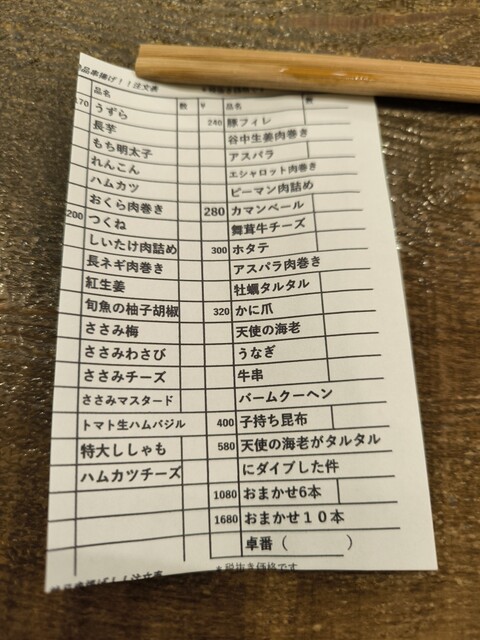 品串揚げ！！注文表
品名 数
170 うずら
長芋
もち明太子
れんこん
ハムカツ
おくら肉巻き
200 つくね
しいたけ肉詰め
長ネギ肉巻き
紅生姜
旬魚の柚子胡椒
ささみ梅
ささみわさび
ささみチーズ
ささみマスタード
トマト生ハムバジル
特大ししゃも
ハムカツチーズ
￥ 品名 数
240 豚フィレ
谷中生姜肉巻き
アスパラ
エシャロット肉巻き
ピーマン肉詰め
280 カマンベール
舞茸牛チーズ
300 ホタテ
アスパラ肉巻き
牡蠣タルタル
320 かに爪
天使の海老
うなぎ
牛串
バームクーヘン
400 子持ち昆布
580 天使の海老がタルタル
にダイブした件
1080 おまかせ6本
1680 おまかせ１０本
卓番（　　　）
＊税抜き価格です